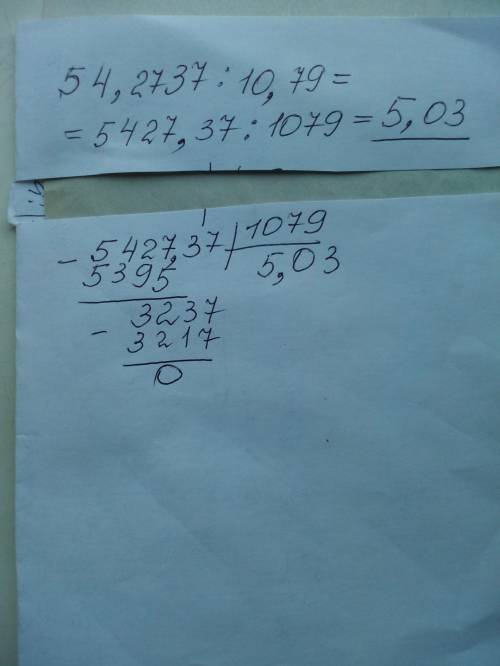 54,2737 : 10,79 =
= 5427,37 : 1079 = 5,03
- 5427,37 | 1079
5395 5,03
3237
- 3217
0